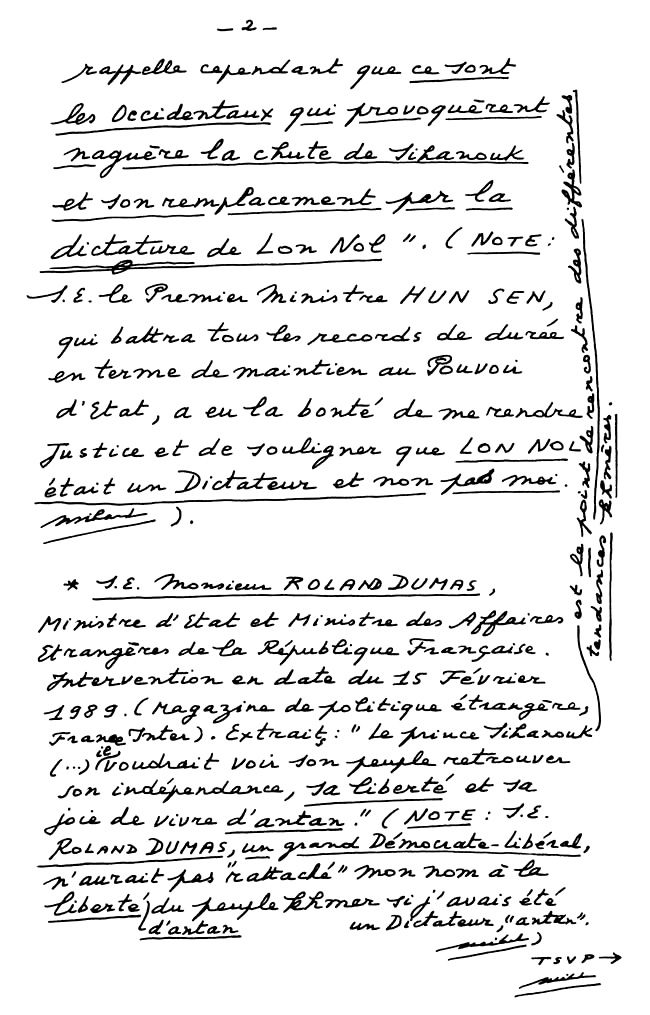 – 2 –
rappelle cependant que ce sont
les Occidentaux qui provoquèrent
naguère la chute de Sihanouk
et son remplacement par la
dictature de Lon Nol". (NOTE :
S.E. le Premier Ministre HUN SEN,
qui battra tous les records de durée
en terme de maintien au Pouvoir
d'Etat, a eu la bonté de me rendre
Justice et de souligner que LON NOL
était un Dictateur et non pas moi.
).
* S.E. Monsieur ROLAND DUMAS,
Ministre d'Etat et Ministre des Affaires
Etrangères de la République Française.
Intervention en date du 15 Février
1989. (Magazine de politique étrangère,
France Inter). Extraits : "Le prince Sihanouk
est le point de rencontre des différentes
tendances khmères.
(...) il voudrait voir son peuple retrouver
son indépendance, sa liberté et sa
joie de vivre d'antan." (NOTE : S.E.
ROLAND DUMAS, un grand Démocrate-libéral,
n'aurait pas "rattaché" mon nom à la
liberté du peuple khmer si j'avais été
d'antan un Dictateur, "antan".
)
TSVP →